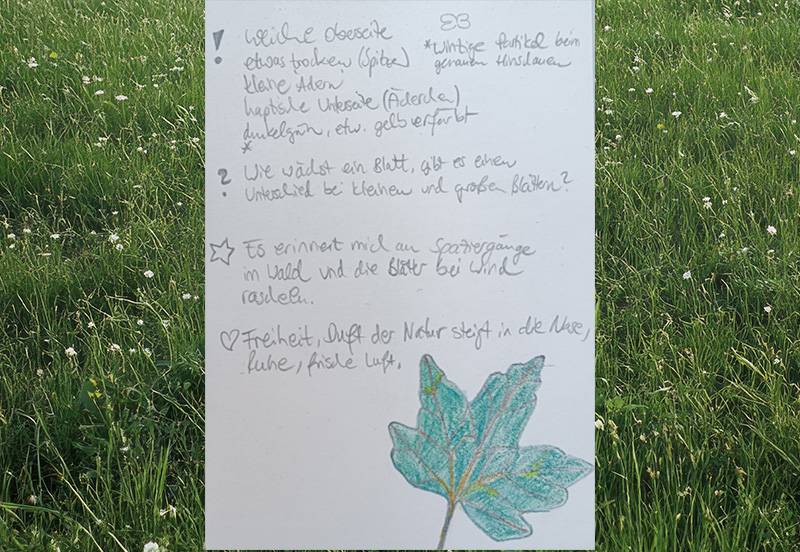 ! weiche Oberseite
etwas trocken (Spitzen)
kleine Adern
haptische Unterseite (Äderchen)
dunkelgrün, etw. gelb verfärbt
*
*Winzige Partikel beim
genauen Hinschauen
? Wie wächst ein Blatt, gibt es einen
Unterschied bei kleinen und großen Blättern?
☆ Es erinnert mich an Spaziergänge
im Wald und die Blätter bei Wind
rascheln.
♡ Freiheit, Duft der Natur steigt in die Nase,
Ruhe, frische Luft.